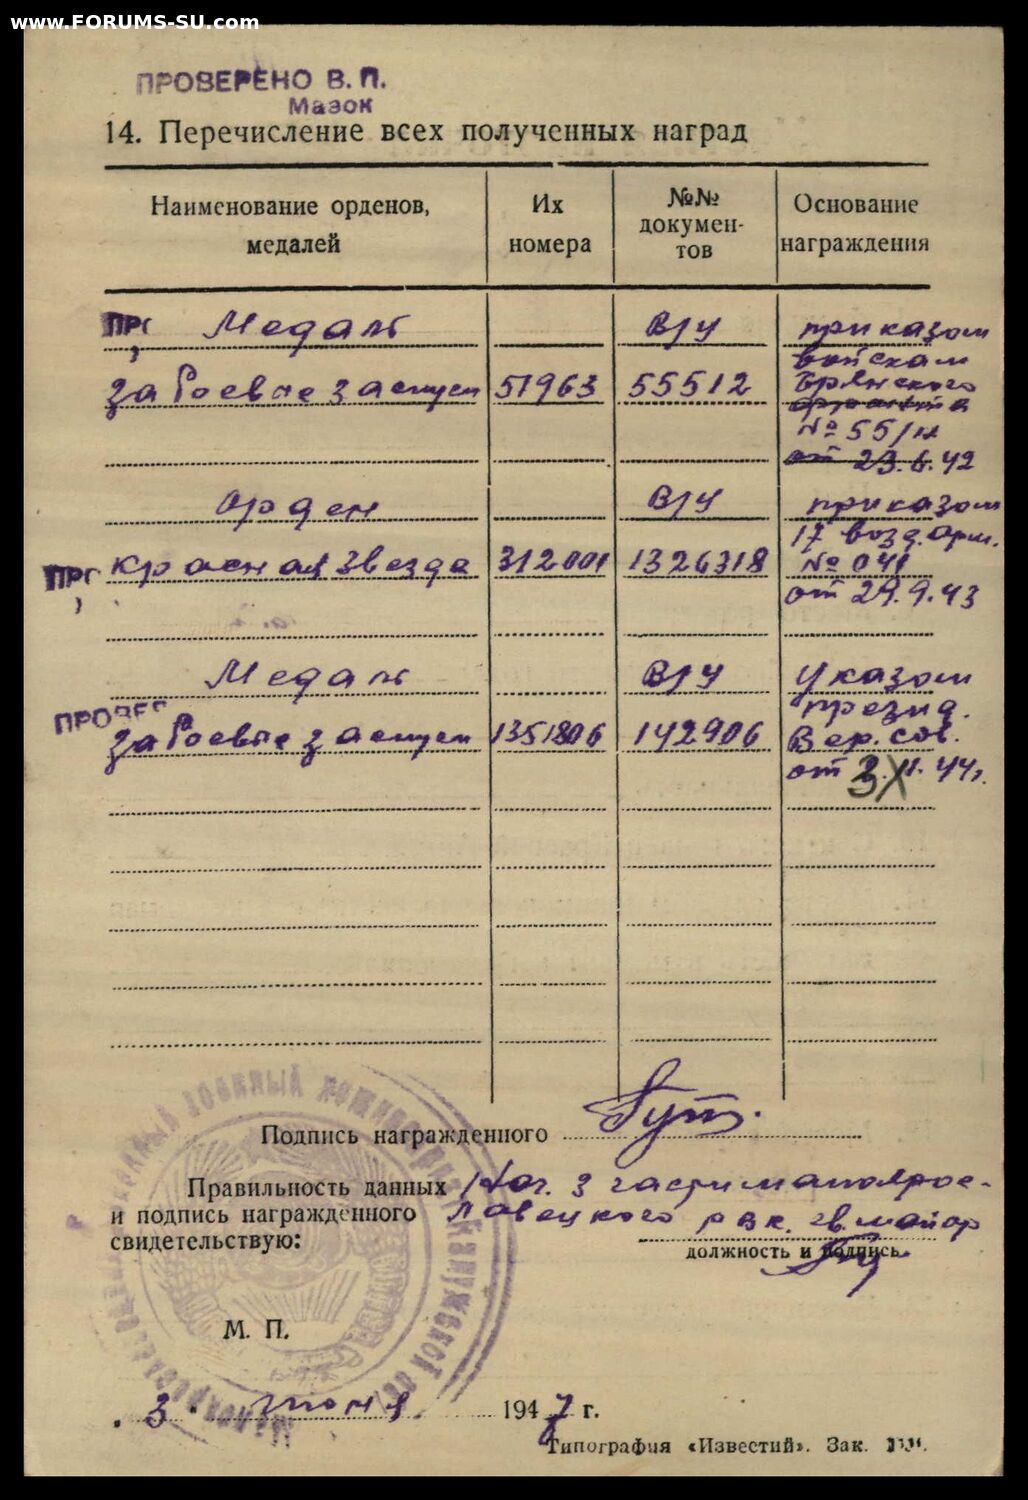 www.FORUMS-SU.com
ПРОВЕРЕНО В. П.
Мазок
14. Перечисление всех полученных наград
Наименование орденов, медалей
Их номера
№№ докумен-
тов
Основание награждения
Медаль В/У приказом
войскам
за боевые заслуги 51963 55512 Брянского
фронта
№ 55/н
от 23.6.42
Орден В/У приказом
17 возд. арм.
Красная Звезда 312001 1326318 № 041
от 29.9.43
Медаль В/У Указом
презид.
за боевые заслуги 1351806 142906 Вер. сов.
от 3.XI.44г.
Подпись награжденного
Правильность данных Нач. 3 части малояросл-
и подпись награжденного лавецкого рвк. гв. майор
свидетельствую:
должность и подпись
М. П.
3 июня 1947 г.
Типография «Известий». Зак.